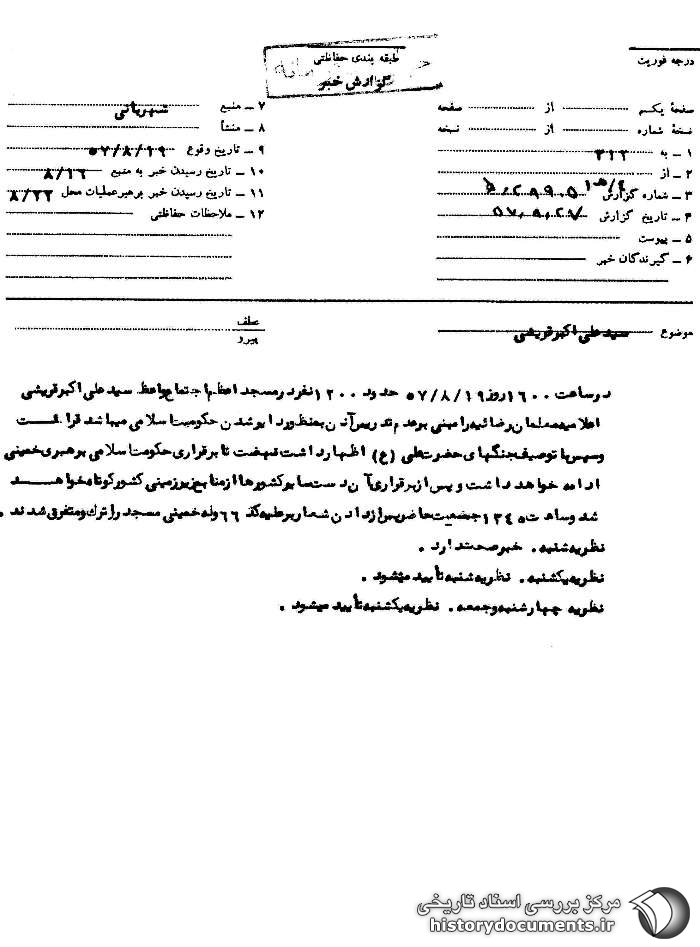 درجه فوریت
طبقه بندی حفاظتی
گزارش خبر
صفحهٔ یکم از صفحه
نسخهٔ شماره از نسخه
۱ ـ به ۳۱۲
۲ ـ از
۳ ـ شماره گزارش
۴ ـ تاریخ گزارش
۵ ـ پیوست
۶ ـ گیرندگان خبر
۷ ـ منبع شهربانی
۸ ـ منشأ
۹ ـ تاریخ وقوع ۵۷/۸/۱۹
۱۰ ـ تاریخ رسیدن خبر به منبع
۱۱ ـ تاریخ رسیدن خبر برهبر عملیات محل ۸/۲۲
۱۲ ـ ملاحظات حفاظتی
موضوع سید علی اکبر قریشی
عطف
پیرو
در ساعت ۱۶۰۰ روز ۵۷/۸/۱۹ حدود ۱۲۰۰ نفر در مسجد اعظم اجتماع واعظ سید علی اکبر قریشی
اعلامیه معلمان رضائیه را مبنی بر عدم تدریس آنان بمنظور دایر شدن حکومت اسلامی میباشد قرائت
و سپس با توصیف جنگهای حضرت علی (ع) اظهار داشت نهضت تا برقراری حکومت اسلامی برهبری خمینی
ادامه خواهد داشت و پس از برقراری آن دست سایر کشورها از منابع زیرزمینی کشور کوتاه خواهد
شد و ساعت جمعیت حاضر پس از دادن شعار بر علیه کد ۶۶ و له خمینی مسجد را ترک و متفرق شدند.
نظریه شنبه. خبر صحت دارد.
نظریه یکشنبه. نظریه شنبه تأیید میشود.
نظریه چهارشنبه و جمعه. نظریه یکشنبه تأیید میشود.
مرکز بررسی اسناد تاریخی
historydocuments.ir